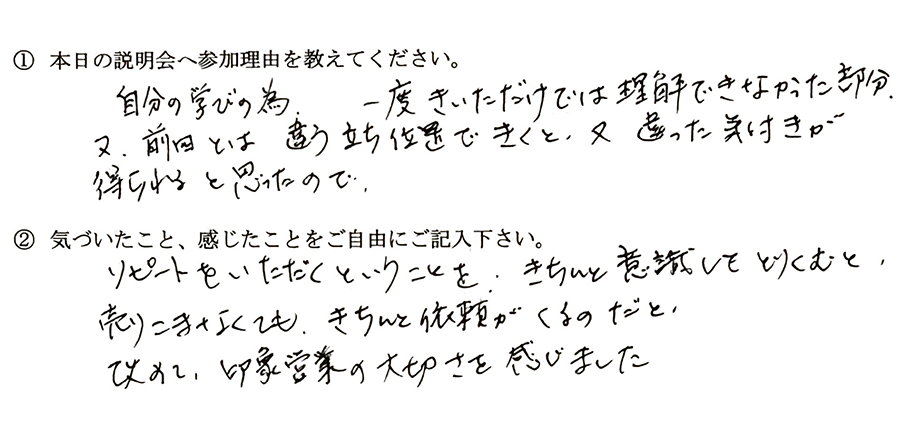 ① 本日の説明会へ参加理由を教えてください。
自分の学びの為. 一度きいただけでは理解できなかった部分.
又. 前回とは違う立ち位置できくと、又違った気付きが
得られると思ったので.
② 気づいたこと、感じたことをご自由にご記入下さい。
リピートをいただくということを. きちんと意識してとりくむと,
売りこまなくても. きちんと依頼がくるのだと,
改めて, 印象営業の大切さを感じました